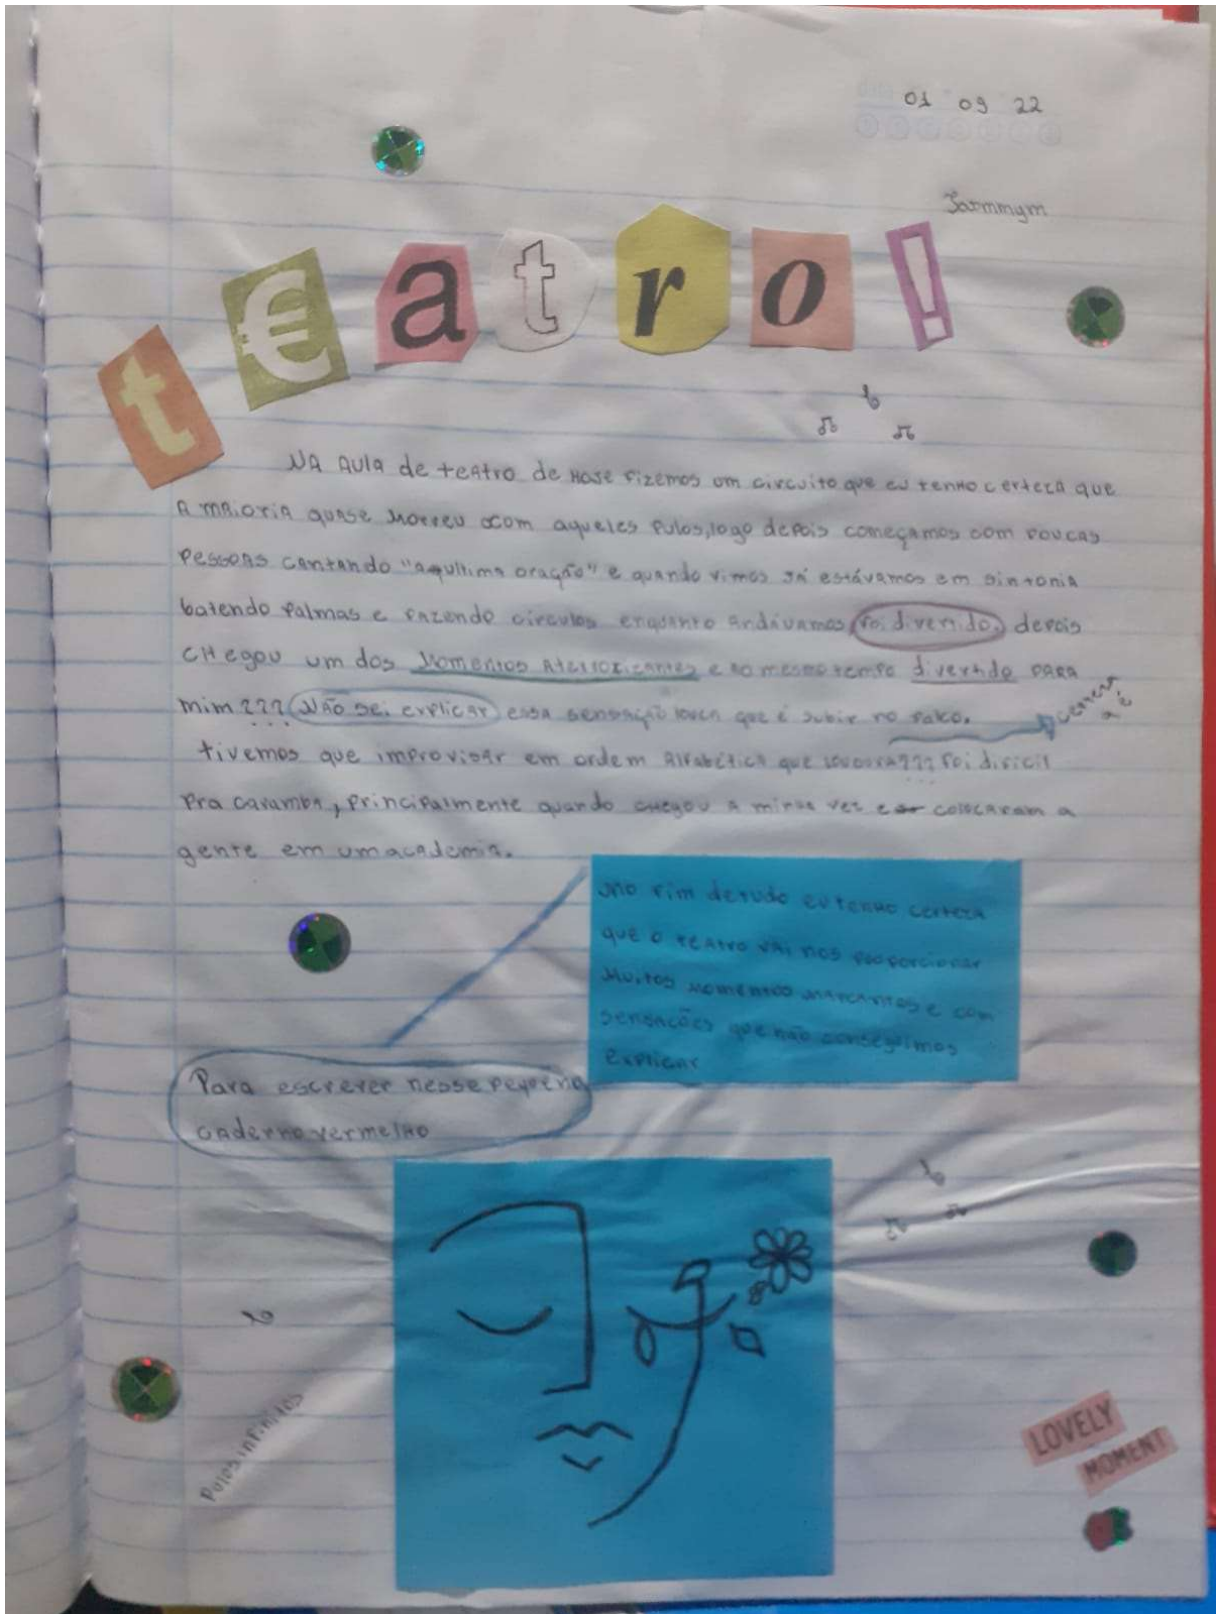 01 09 22
Jammym
t€atro!
NA AULA de teatro de HOJE fizemos um circuito que eu tenho certeza que
A MAIORIA quase morreu com aqueles pulos, logo depois começamos com poucas
pessoas cantando "a última oração" e quando vimos já estávamos em sintonia
batendo palmas e fazendo círculos enquanto andávamos foi divertido, depois
chegou um dos momentos aterrorizantes e ao mesmo tempo divertido PARA
mim??? Não sei explicar essa sensação louca que é subir no palco.
tivemos que improvisar em ordem alfabética que loucura??? foi difícil
pra caramba, principalmente quando chegou a minha vez e colocaram a
gente em uma academia.
No fim de tudo eu tenho certeza
que o teatro vai nos proporcionar
muitos momentos marcantes e com
sensações que não conseguimos
explicar
Para escrever nesse pequeno
caderno vermelho
Pulos infinitos
LOVELY
MOMENT